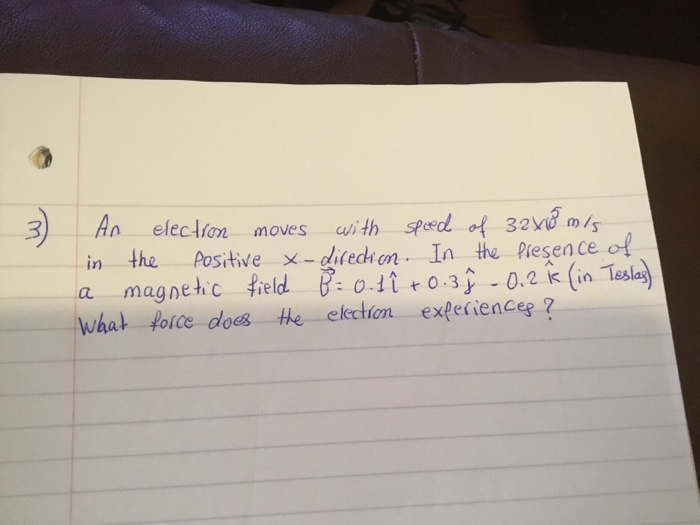 3) An electron moves with speed of 32x10⁵ m/s
in the positive x-direction. In the presence of
a magnetic field B⃗ = 0.1î + 0.3ĵ - 0.2 k̂ (in Teslas)
What force does the electron experiences?